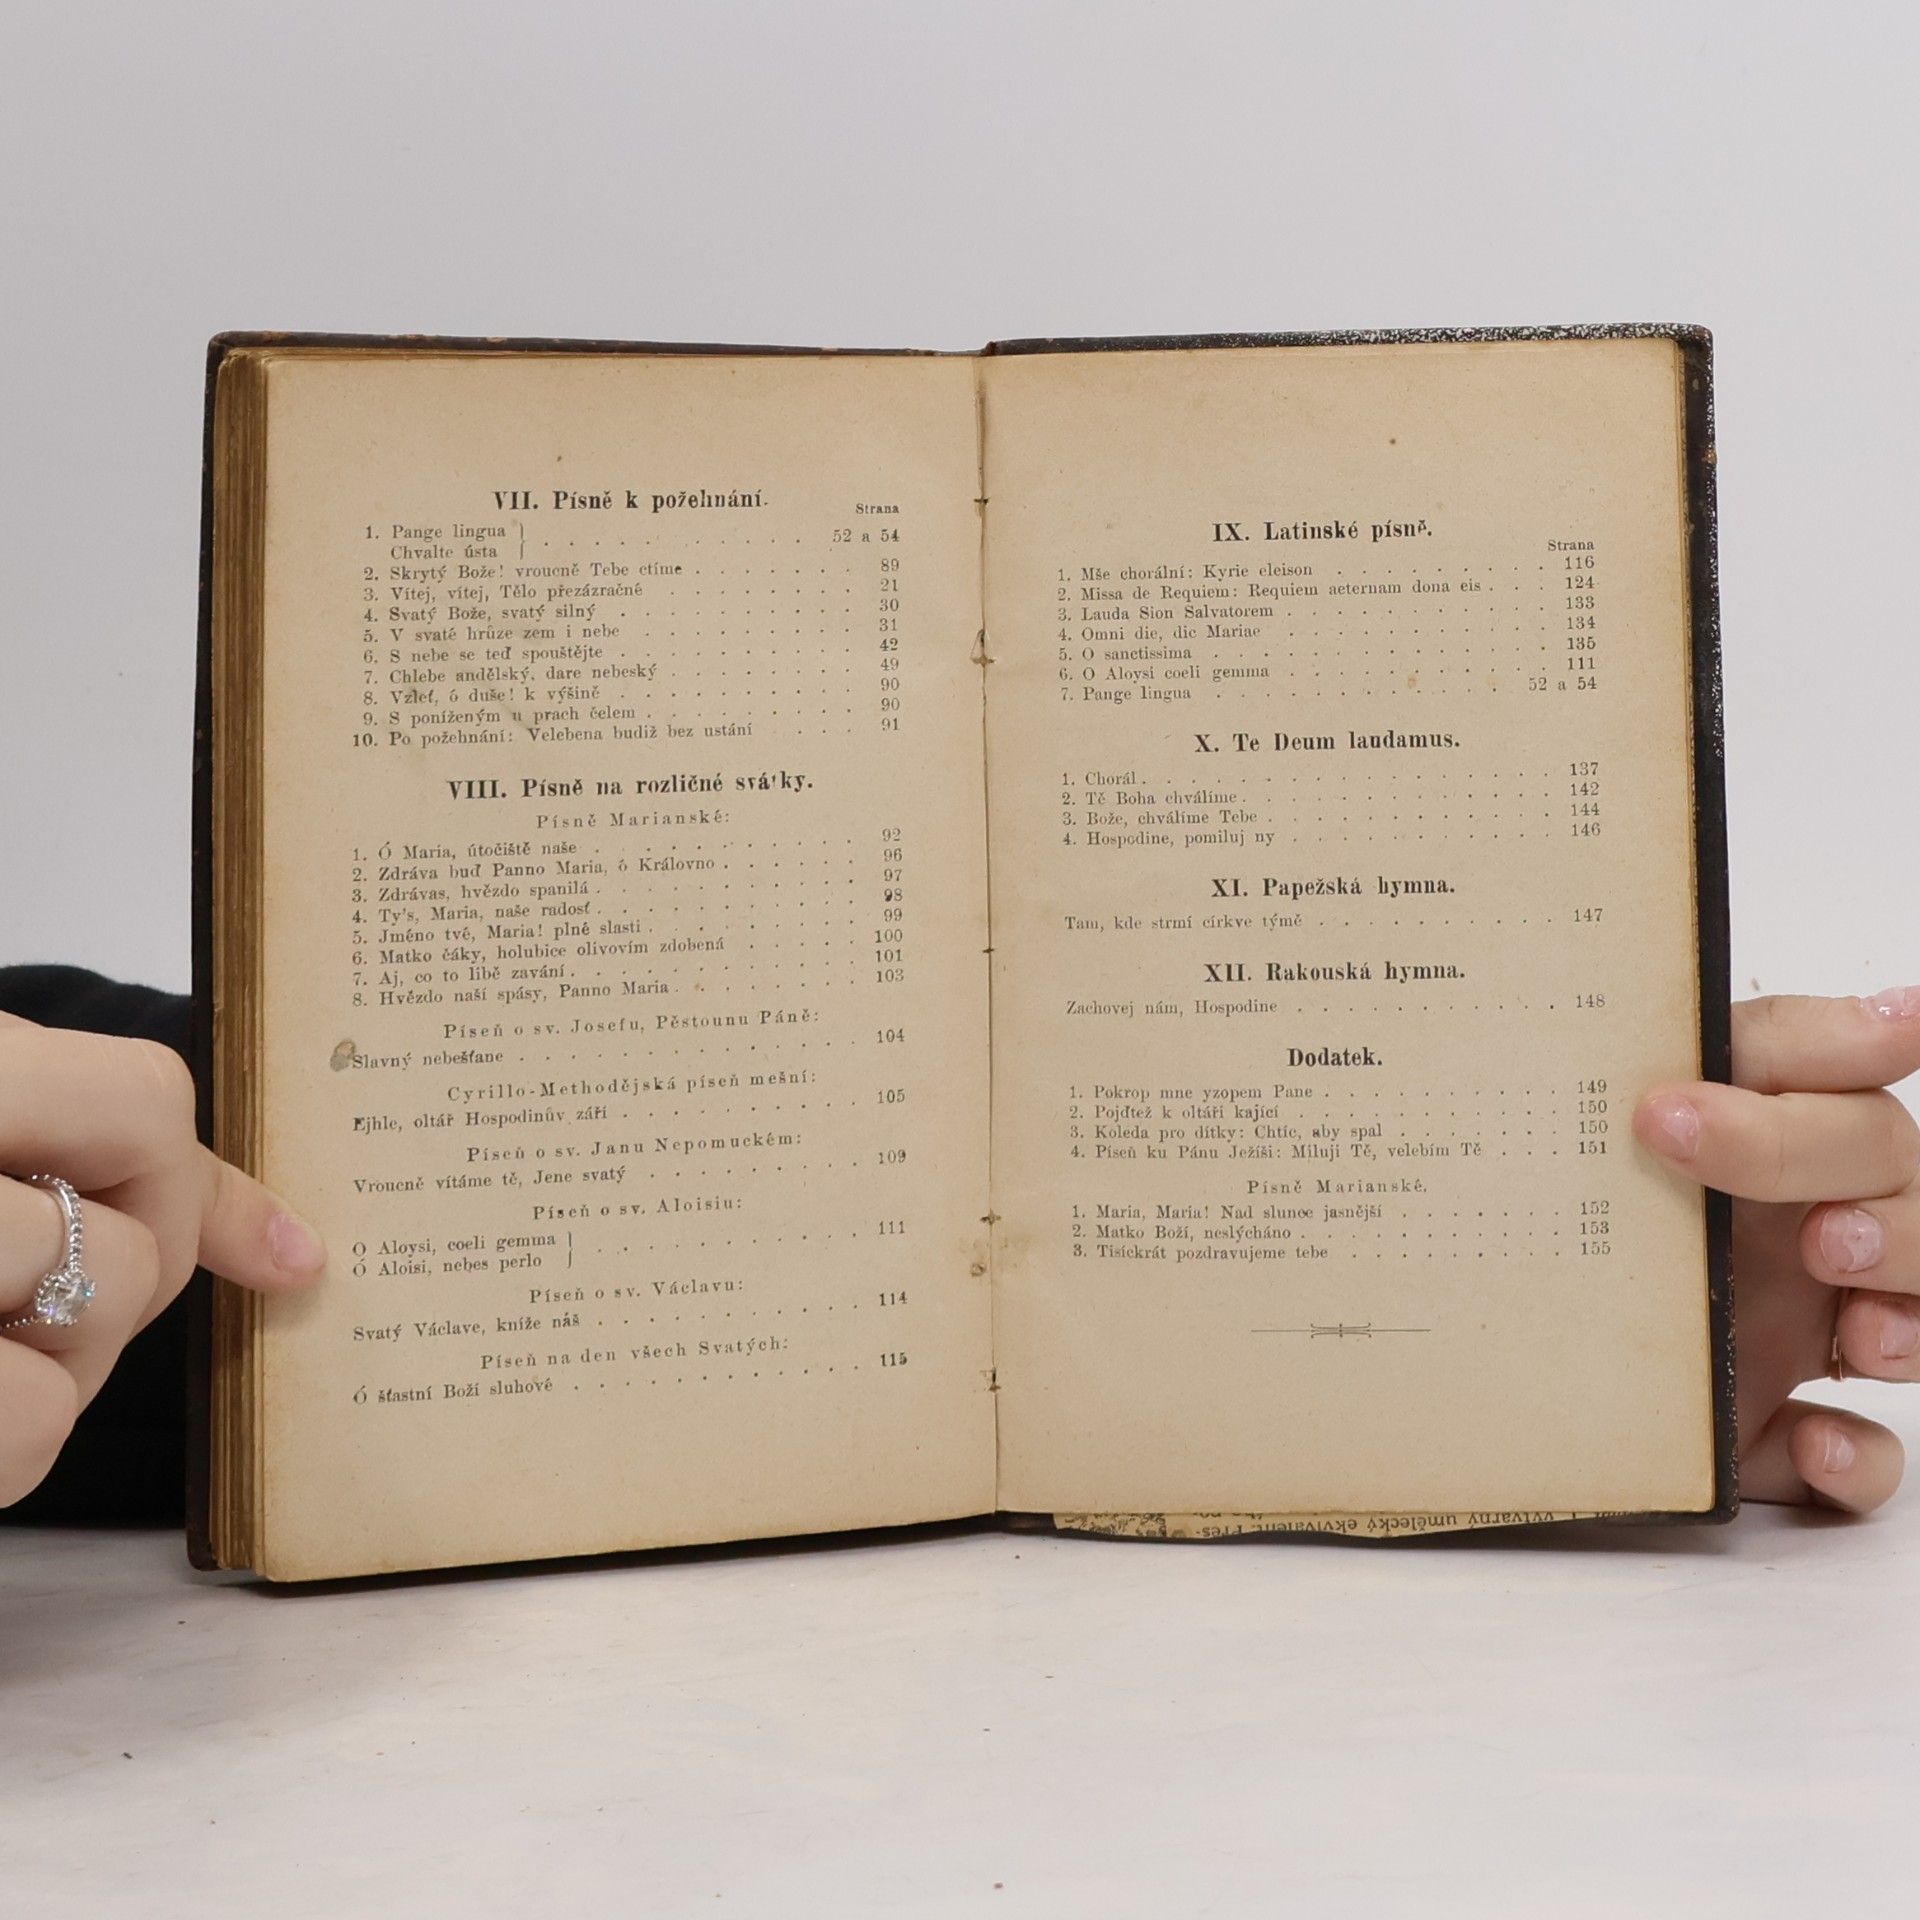 VII. Písně k požehnání.
Strana
1. Pange lingua
Chvalte ústa . . . . . . . . . . . 52 a 54
2. Skrytý Bože! vroucně Tebe ctíme . . . . . . . 89
3. Vítej, vítej, Tělo přezázračné . . . . . . . . 21
4. Svatý Bože, svatý silný . . . . . . . . . . 30
5. V svaté hrůze zem i nebe . . . . . . . . . 31
6. S nebe se teď spouštějte . . . . . . . . . . 42
7. Chlebe andělský, dare nebeský . . . . . . . . 49
8. Vzleť, ó duše! k výšině . . . . . . . . . . 90
9. S poníženým u prach čelem . . . . . . . . . 90
10. Po požehnání: Velebena budiž bez ustání . . . . 91
VIII. Písně na rozličné svátky.
Písně Marianské:
1. Ó Maria, útočiště naše . . . . . . . . . . 92
2. Zdráva buď Panno Maria, ó Královno . . . . . . 96
3. Zdrávas, hvězdo spanilá . . . . . . . . . . . 97
4. Ty's, Maria, naše radosť . . . . . . . . . . . 98
5. Jméno tvé, Maria! plné slasti . . . . . . . . . 99
6. Matko čáky, holubice olivovím zdobená . . . . . 100
7. Aj, co to libě zavání . . . . . . . . . . . . 101
8. Hvězdo naší spásy, Panno Maria . . . . . . . . 103
Píseň o sv. Josefu, Pěstounu Páně:
Slavný nebešťane . . . . . . . . . . . . . 104
Cyrillo-Methodějská píseň mešní:
Ejhle, oltář Hospodinův září . . . . . . . . . 105
Píseň o sv. Janu Nepomuckém:
Vroucně vítáme tě, Jene svatý . . . . . . . . 109
Píseň o sv. Aloisiu:
O Aloysi, coeli gemma
Ó Aloisi, nebes perlo . . . . . . . . . . . 111
Píseň o sv. Václavu:
Svatý Václave, kníže náš . . . . . . . . . . 114
Píseň na den všech Svatých:
Ó šťastní Boží sluhové . . . . . . . . . . . 115
IX. Latinské písně.
Strana
1. Mše chorální: Kyrie eleison . . . . . . . . . 116
2. Missa de Requiem: Requiem aeternam dona eis . . . 124
3. Lauda Sion Salvatorem . . . . . . . . . . . 133
4. Omni die, dic Mariae . . . . . . . . . . . 134
5. O sanctissima . . . . . . . . . . . . . . 135
6. O Aloysi coeli gemma . . . . . . . . . . . 111
7. Pange lingua . . . . . . . . . . . . 52 a 54
X. Te Deum laudamus.
1. Chorál . . . . . . . . . . . . . . . . . 137
2. Tě Boha chválíme . . . . . . . . . . . . . 142
3. Bože, chválíme Tebe . . . . . . . . . . . . 144
4. Hospodine, pomiluj ny . . . . . . . . . . . 146
XI. Papežská hymna.
Tam, kde strmí církve týmě . . . . . . . . . . 147
XII. Rakouská hymna.
Zachovej nám, Hospodine . . . . . . . . . . . 148
Dodatek.
1. Pokrop mne yzopem Pane . . . . . . . . . . 149
2. Pojďtež k oltáři kající . . . . . . . . . . . 150
3. Koleda pro dítky: Chtíc, aby spal . . . . . . . 150
4. Píseň ku Pánu Ježíši: Miluji Tě, velebím Tě . . . 151
Písně Marianské.
1. Maria, Maria! Nad slunce jasnější . . . . . . . 152
2. Matko Boží, neslýcháno . . . . . . . . . . . 153
3. Tisíckrát pozdravujeme tebe . . . . . . . . . 155
výtvarný umělecký ekvivalent. Pres-